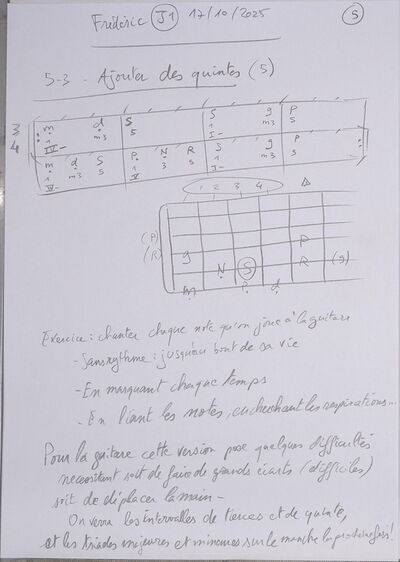 Frédéric J1 17/10/2025 5
5-3. Ajouter des quintes (5)
3 m d S S g P
4 1 m3 5 1 m3 5
III- I-
m d S P N R S g P
1 m3 5 1 3 5 1 m3 5
III- V I-
1 2 3 4 Δ
(P)
(R) g P
N S R (g)
m P d
Exercice : chanter chaque note qu'on joue à la guitare
- Sans rythme : jusqu'au bout de sa vie
- En marquant chaque temps
- En liant les notes, en cherchant les respirations...
Pour la guitare cette version pose quelques difficultés
necessitant soit de faire de grands écarts (difficiles)
soit de déplacer la main -
On verra les intervalles de tierces et de quinte,
et les triades majeures et mineures sur le manche la prochaine fois !